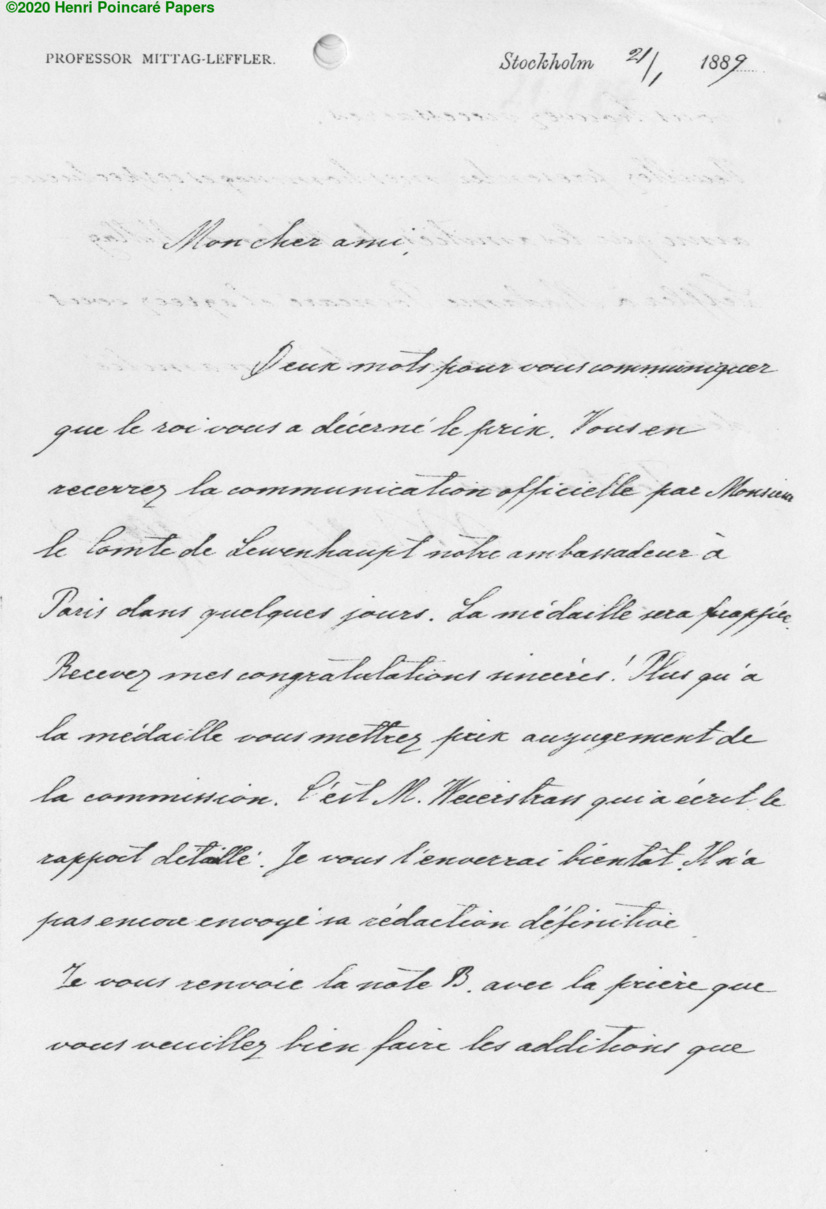 ©2020 Henri Poincaré Papers
PROFESSOR MITTAG-LEFFLER.
Stockholm 21/1 1889
Mon cher ami,
Deux mots pour vous communiquer
que le roi vous a décerné le prix. Vous en
recevrez la communication officielle par Monsieur
le Comte de Lewenhaupt notre ambassadeur à
Paris dans quelques jours. La médaille sera frappée.
Recevez mes congratulations sincères! Plus qu'a
la médaille vous mettrez prix au jugement de
la commission. C'est M. Weierstrass qui a écrit le
rapport détaillé. Je vous l'enverrai bientôt. Il n'a
pas encore envoyé sa rédaction définitive
Je vous renvoie la note B. avec la prière que
vous veuillez bien faire les additions que